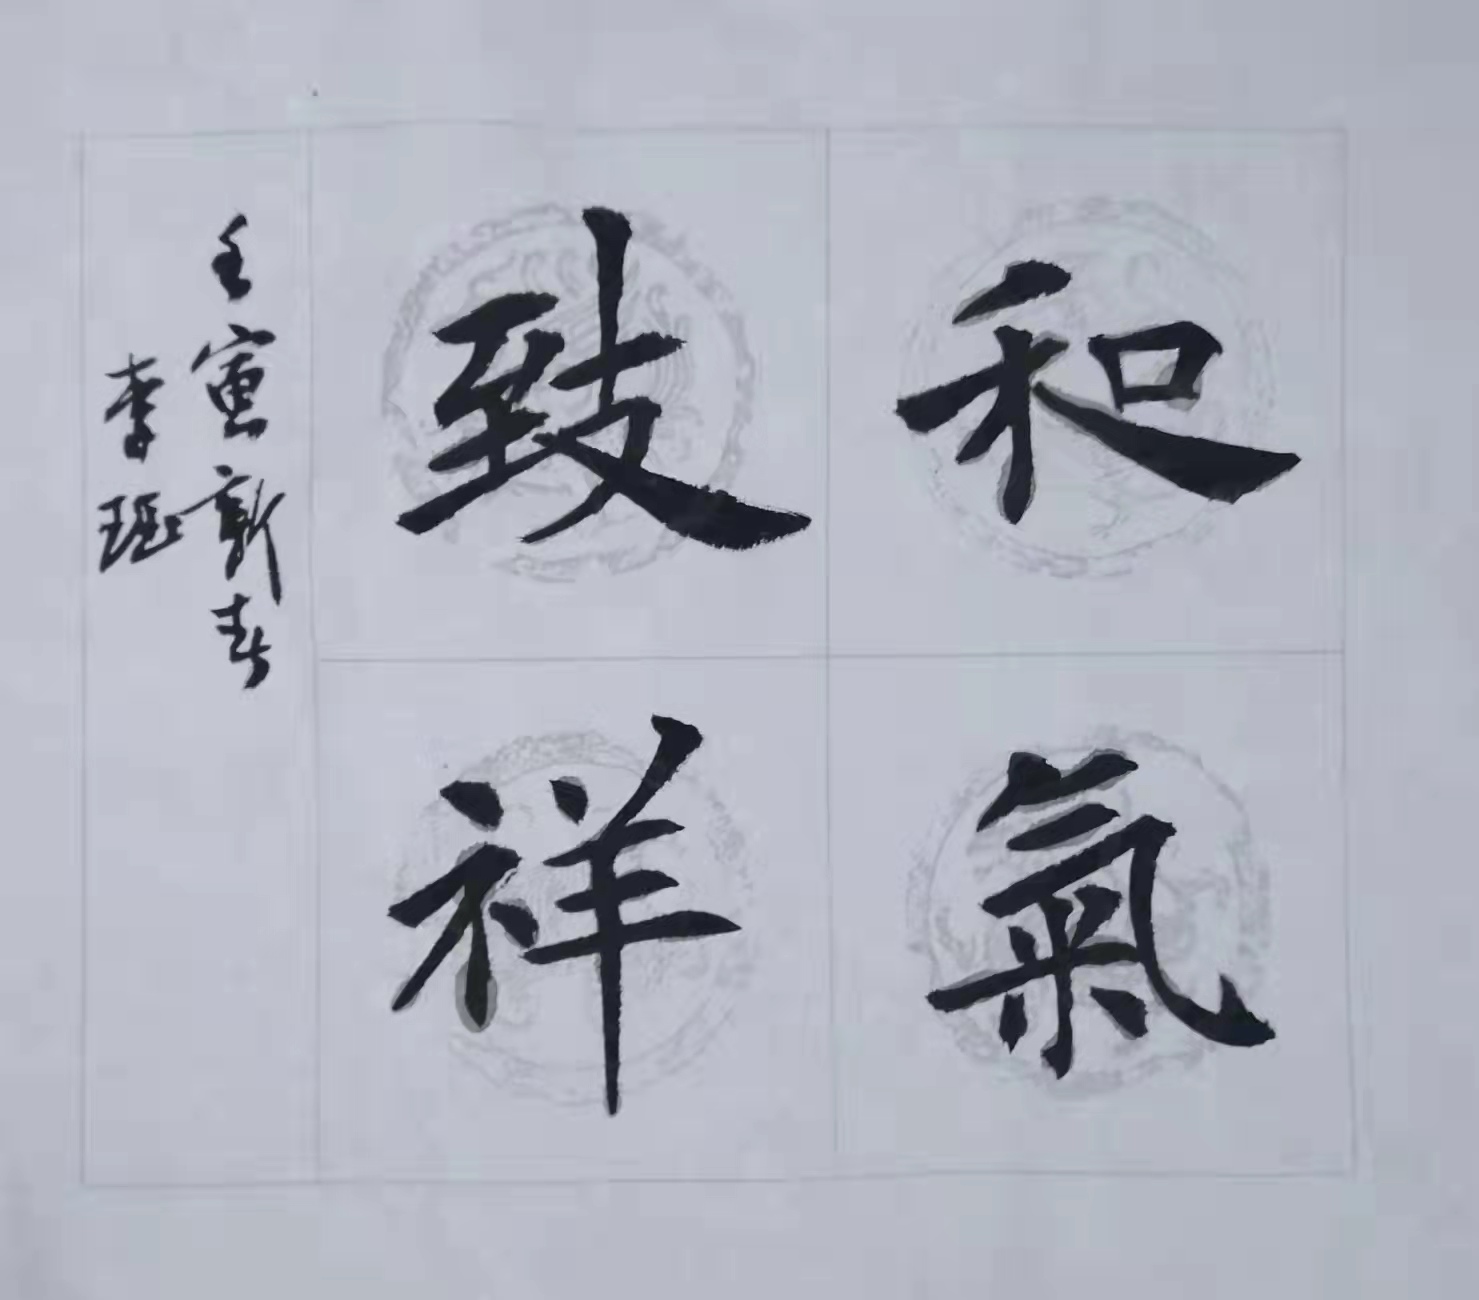 和氣
致祥
壬寅新春
李珽